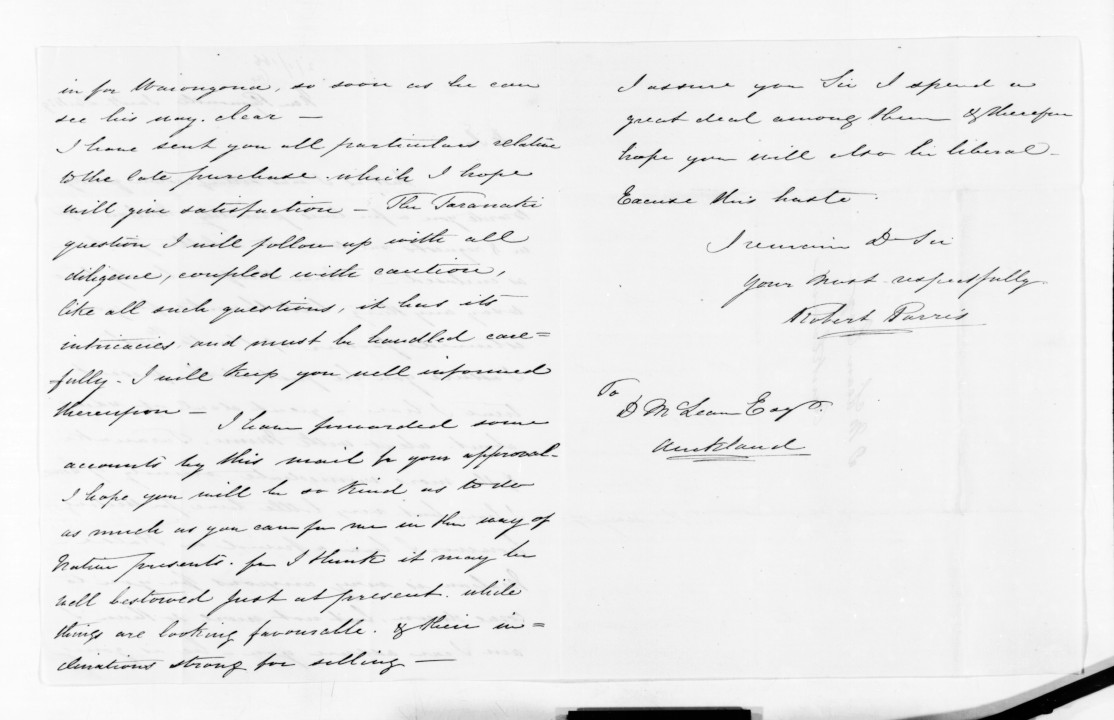 in for Waiongona, so soon as he can
see his way. clear —
I have sent you all particulars relative
to the late purchase. which I hope
will give satisfaction — The Taranaki
question I will follow up with all
diligence, coupled with caution,
like all such questions, it has its
intricacies and must be handled care=
fully. I will keep you well informed
thereupon —
I have forwarded some
accounts by this mail for your approval.
I hope you will be so kind as to do
as much as you can for me in the way of
Native presents. for I think it may be
well bestowed just at present. while
things are looking favourable. & their in=
clinations strong for selling —
I assure you Sir I spend a
great deal among them & therefore
hope you will also be liberal.
Excuse this haste.
I remain Dr Sir
Your most respectfully
Robert Parris
To
D McLean Esqr.
Auckland